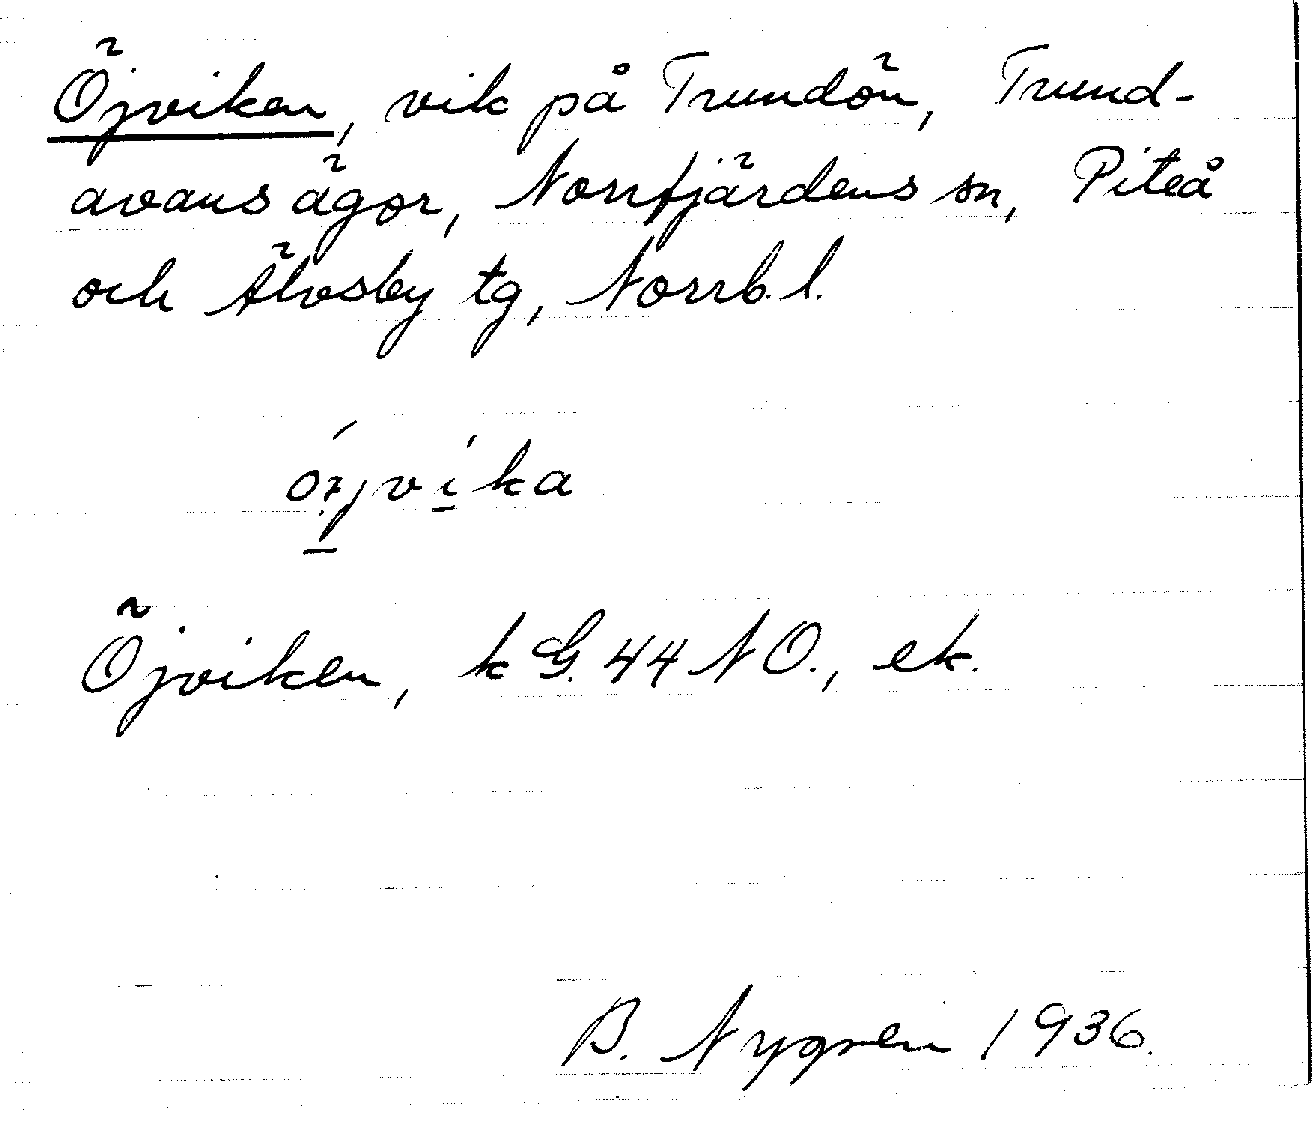 Öjviken, vik på Trundön, Trund-
avans ägor, Norrfjärdens sn, Piteå
och Älvsby tg, Norrb. l.
Öjviken, k G. 44 NO., ek.
B. Nygren 1936.